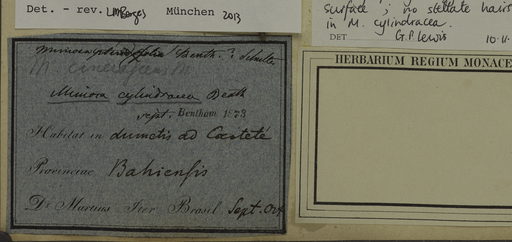 Det. - rev. LMBorges München 2013
surface; no stellate hairs
in M. cylindracea.
DET G.P. Lewis 10.11
HERBARIUM REGIUM MONACE
Benth.
M. cinerascens M.
Mimosa cylindracea Benth
rept. Bentham 1873
Habitat in dumetis ad Caeteté
Provinciae Bahiensis
Dr Martius Iter Brasil Sept. Oct